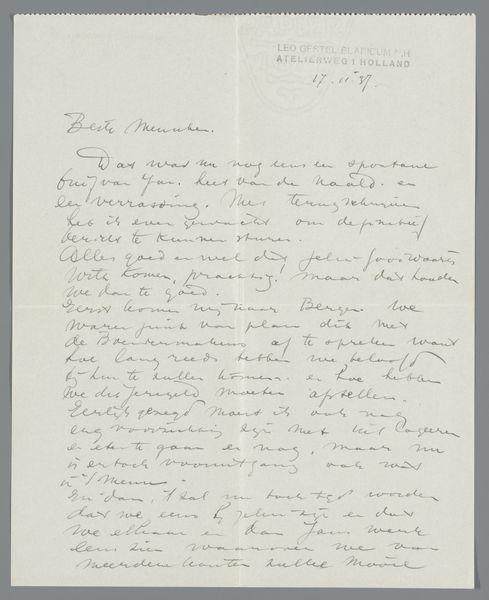 LEO GESTEL BLARICUM N.H
ATELIERWEG 1 HOLLAND
17. 11. '37.
Beste Mennchen.
Dat was nu nog eens een spontane
brief van Jan. heet van de naald. en
een verrassing. Met terugschrijven
heb ik even gewacht om definitief
bericht te kunnen sturen.
Alles goed en wel dat
komen, prachtig! maar dat houden
we dan te goed.
Eerst komen wij naar Bergen. We
waren juist van plan dit met
de Boendermakers af te spreken want
hoe lang reeds hebben we beloofd
bij hen te zullen komen. en hoe hebben
we dit geregeld moeten afstellen.
Eerlijk gezegd moet ik ook nog
erg voorzichtig zijn met uit logeeren
en eten te gaan en nog, maar nu
is er toch vooruitgang ook wat
't menu
En dan, 't zal nu toch tijd worden
dat we eens bij zijn en dat
we elkaar en dan Jans werk
eens zien waarover we van
meerdere kanten zulke mooie